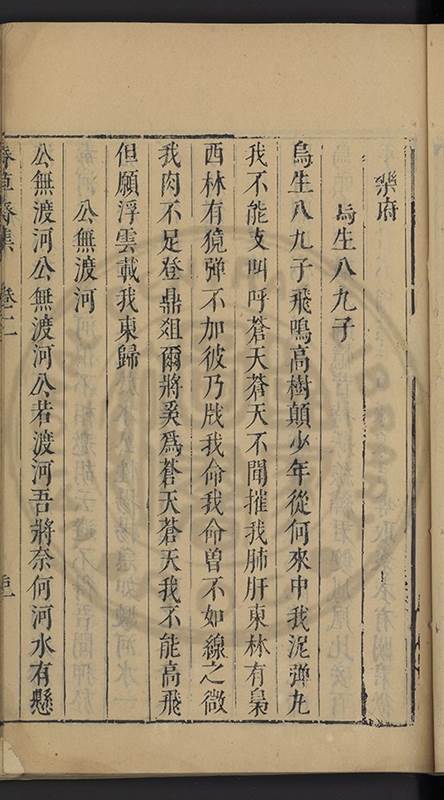 樂府
烏生八九子
烏生八九子飛鳴高樹顛少年從何來中我泥彈丸
我不能支叫呼蒼天蒼天不聞摧我肺肝東林有梟
西林有獍彈不加彼乃戕我命我命曾不如線之微
我肉不足登鼎俎爾將奚爲蒼天蒼天我不能高飛
但願浮雲載我東歸
公無渡河
公無渡河公無渡河公若渡河吾將奈何河水有懸
春草齋集 卷一